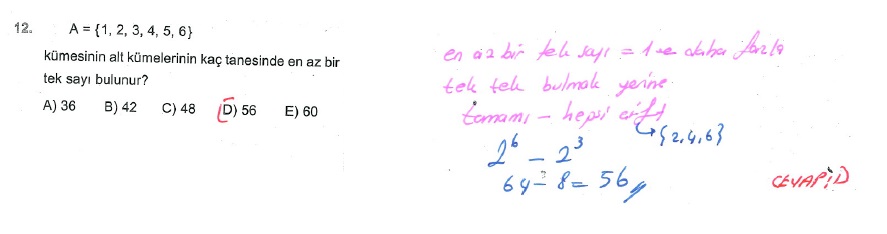 12. A = {1, 2, 3, 4, 5, 6}
kümesinin alt kümelerinin kaç tanesinde en az bir
tek sayı bulunur?
A) 36 B) 42 C) 48 D) 56 E) 60
en az bir tek sayı = 1 ve daha fazla
tek tek bulmak yerine
tamamı - hepsi çift
{2,4,6}
2⁶ - 2³
64 - 8 = 56
CEVAP: D